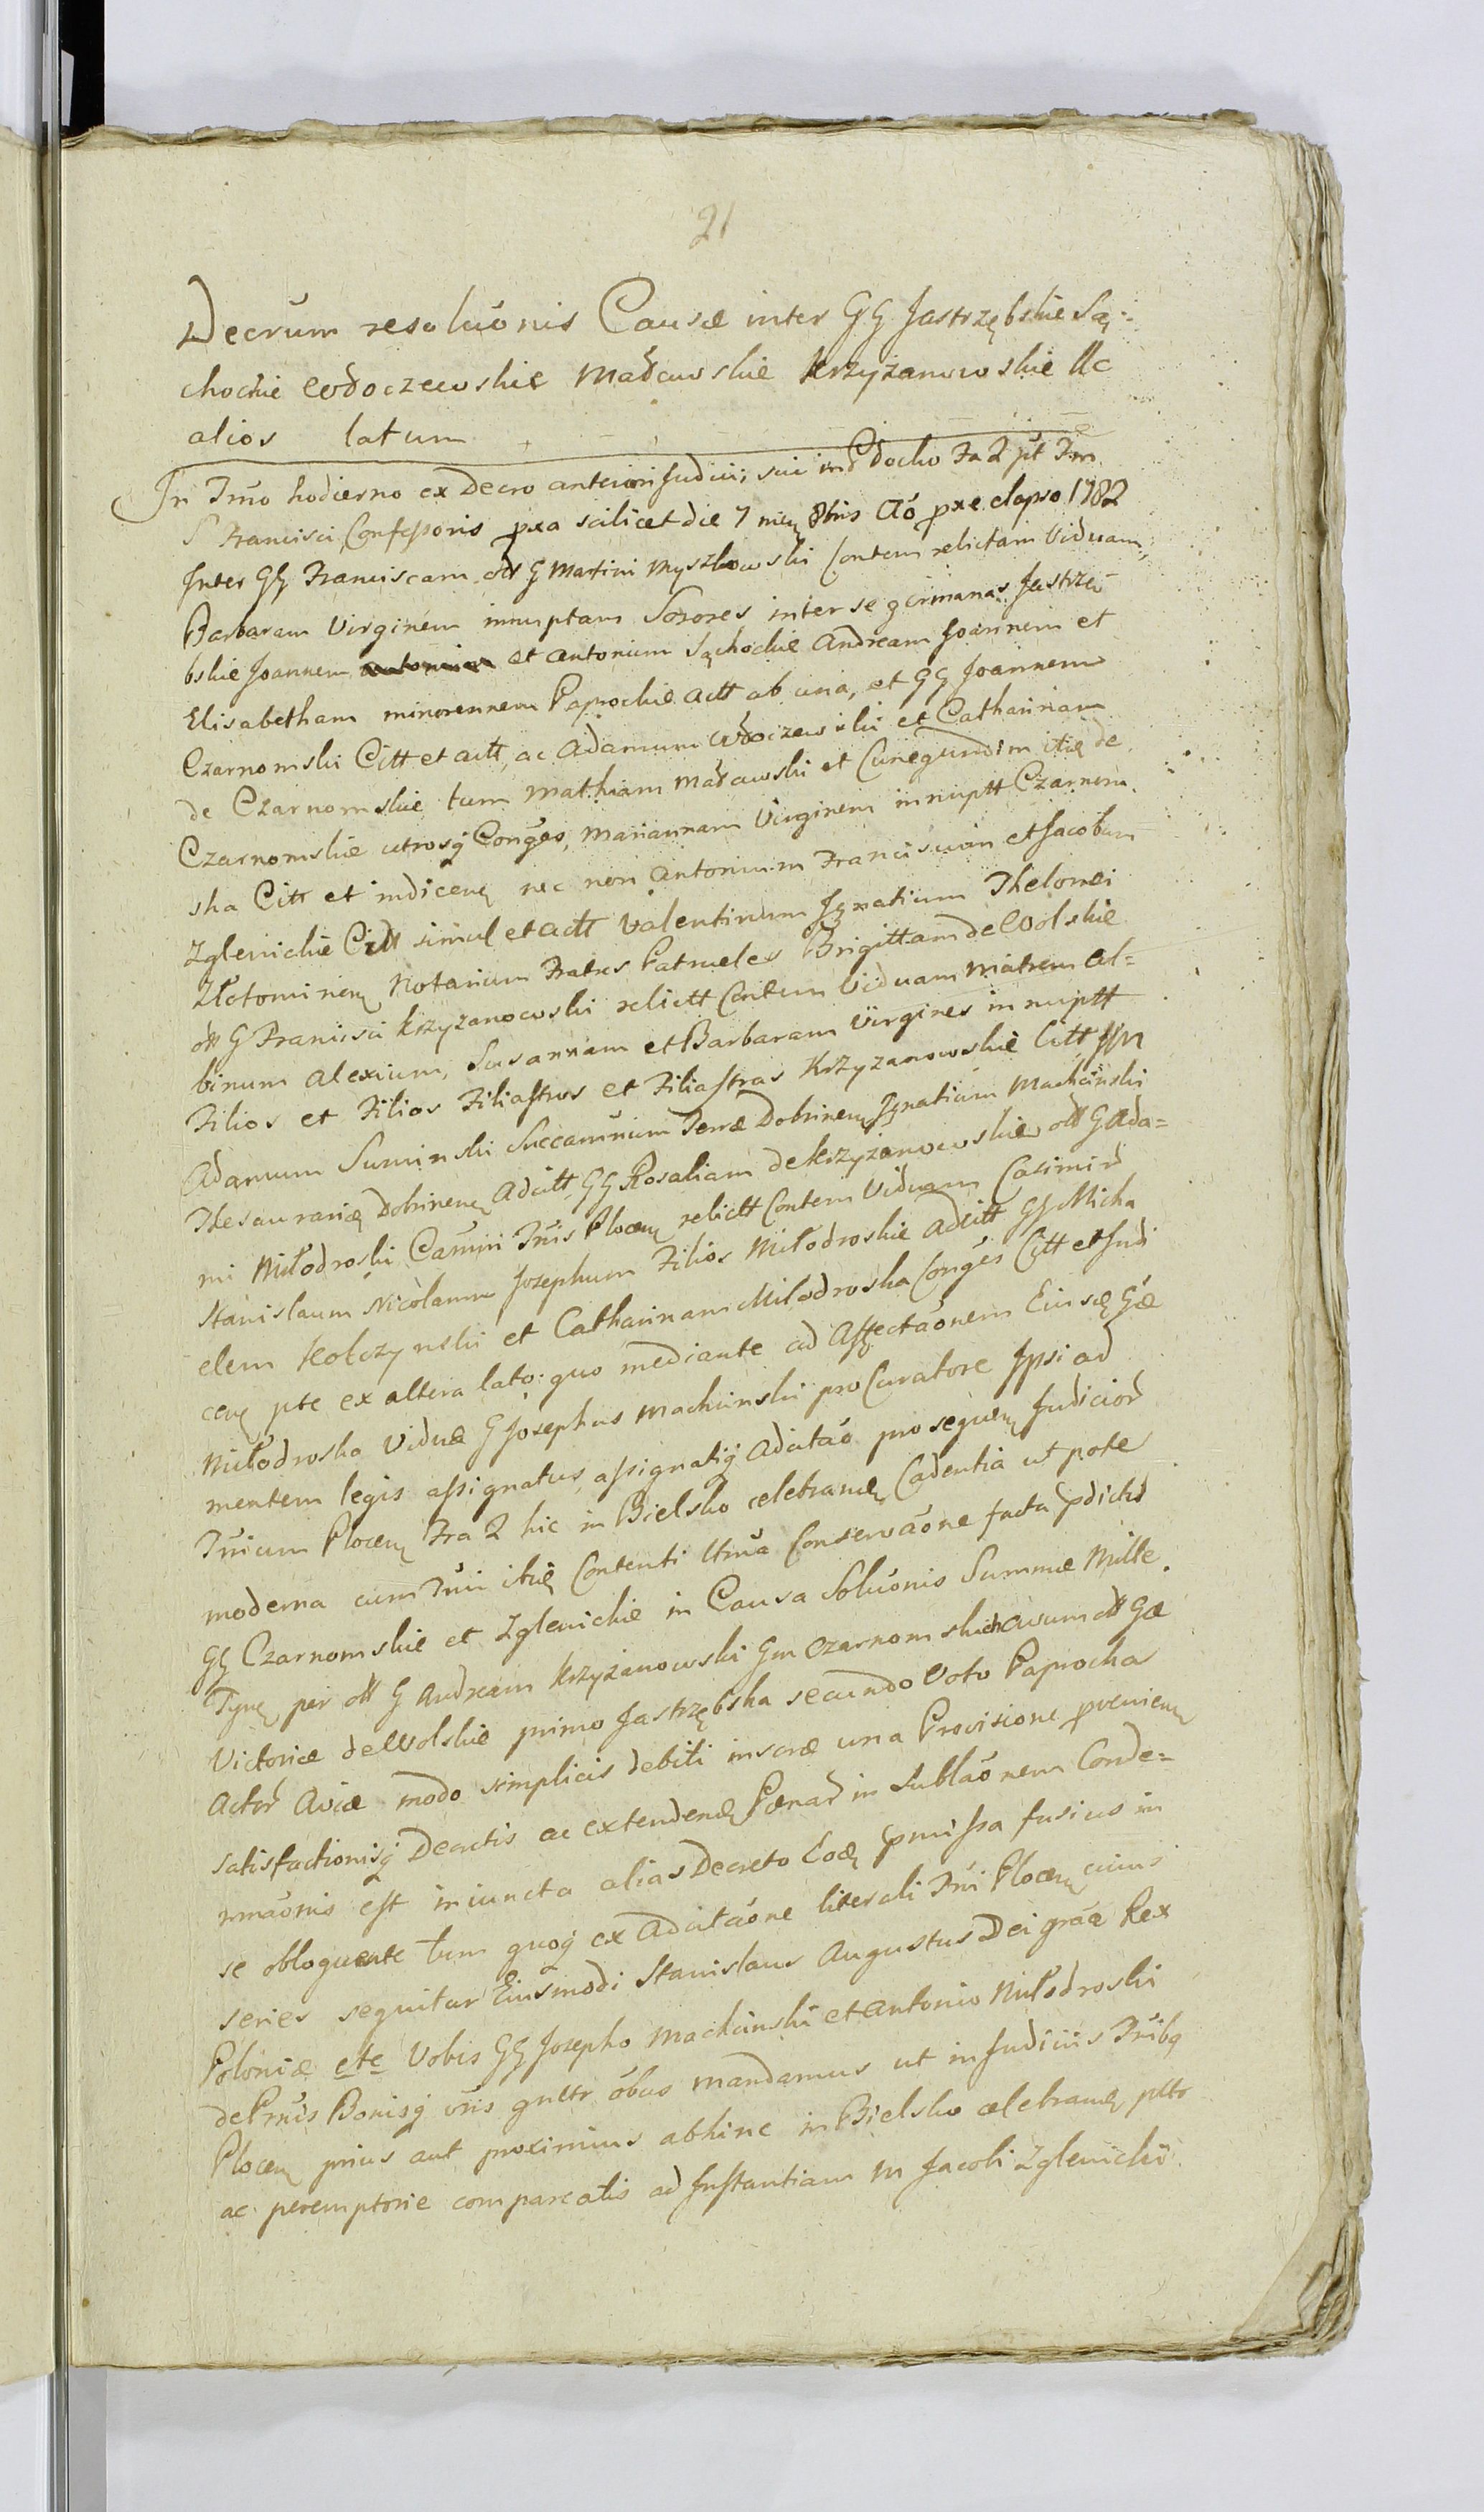 21
Decrum resoluónis Causæ inter GG Jastrzębskie Są:
chockie Włoczewskie Małowskie Krzyżanowskie Ac
alios latum
In Trño hodierno ex Decro anteriori Judicii, sui in Płocko Fa 2 pt Fm
S Francisci Confessoris pxa scilicet die 7 men 8bris Aó pxe elapso 1782
Inter GG Franciscam olt G Martini Myszkowski Contem relictam Viduam,
Barbaram Virginem innuptam Sorores inter se germanas Jastrzę-
bskie Joannem et Antonium Sąchockie Andream Joannem et
Elisabetham minorennem Paprockie Actt ab una, et GG Joannem
Czarnomski Citt et actt, ac Adamum Włoczewski et Catharinam
de Czarnomskie tum Mathiam Małowski et Cunegundim itię de
Czarnomskie utrosq Conges, Mariannam Virginem innuptt Czarnom
ska Citt et indicen nec non Antonium Franciscum et Jacobum
Zglenickie Citt simul et actt Valentinum Ignatium Thelonei
Złotorinen Notarium Fratres Patrueles Brigittam de Wolskie
olt G Francisci Krzyżanowski relictt Contem Viduam Matrem Al=
binum Alexium, Susannam et Barbaram Virgines innuptt
Filios et Filios Filiastros et Filiastras Krzyżanowskie Citt
Adamum Suminski Succamrium Terræ Dobrinen Ignatium Machcinski
Thesaurariæ Dobrinen Adcitt GG Rosaliam de Krzyżanowskie olt G Ada=
mi Miłodroski Camrii Tris Plocen relictt Contem Viduam Casimir
Stanislaum Nicolaum Josephum Filios Miłodroskie Adcitt GG Micha
elem Kołczynski et Catharinam Miłodroska Conges Citt et Judi
cen pte ex altera lato: quo mediante ad Affectaónem Eiusdę Gæ
Miłodroska Viduæ G Josephus Machcinski pro Curatore Ipsi ad
mentem legis assignatus, assignatiq Adcitao prosequen Judicior
Trium Plocen Fra 2 hic in Bielsko celebrandę Cadentia ut pote
moderna cum Trii itię Contenti Conservaóne facta pdictis
GG Czarnomskie et Zglenickie in Causa Soluónis Summæ Mille
Tynę per olt G Andream Krzyżanowski Gm Czarnomskich avum olt Gæ
Victoriæ de Wolskie primo Jastrzębska secundo Voto Paprocka
Actor Aviæ modo simplicis debiti inscræ una Provisione provenien
satisfactionisq Deactis ac extendendę Pœnar in Sublaónem Conde=
mnaónis est iniuncta alias Decreto Eodę pmissa fusius in
se obloquente tum quoq ex Adcitaóne literali Trii Plocen cuius
series sequitur Eiusmodi Stanislaus Augustus Dei gráa Rex
Poloniæ etc Vobis GG Josepho Machcinski et Antonio Miłodroski
de Prnis Bonisq vris gnltr óbus mandamus ut in Judiciis Tribq
Plocen prius aut proximius abhinc in Bielsko celebrandę pltr
ac peremptorie compareatis ad Instantiam M Jacobi Zglenicki